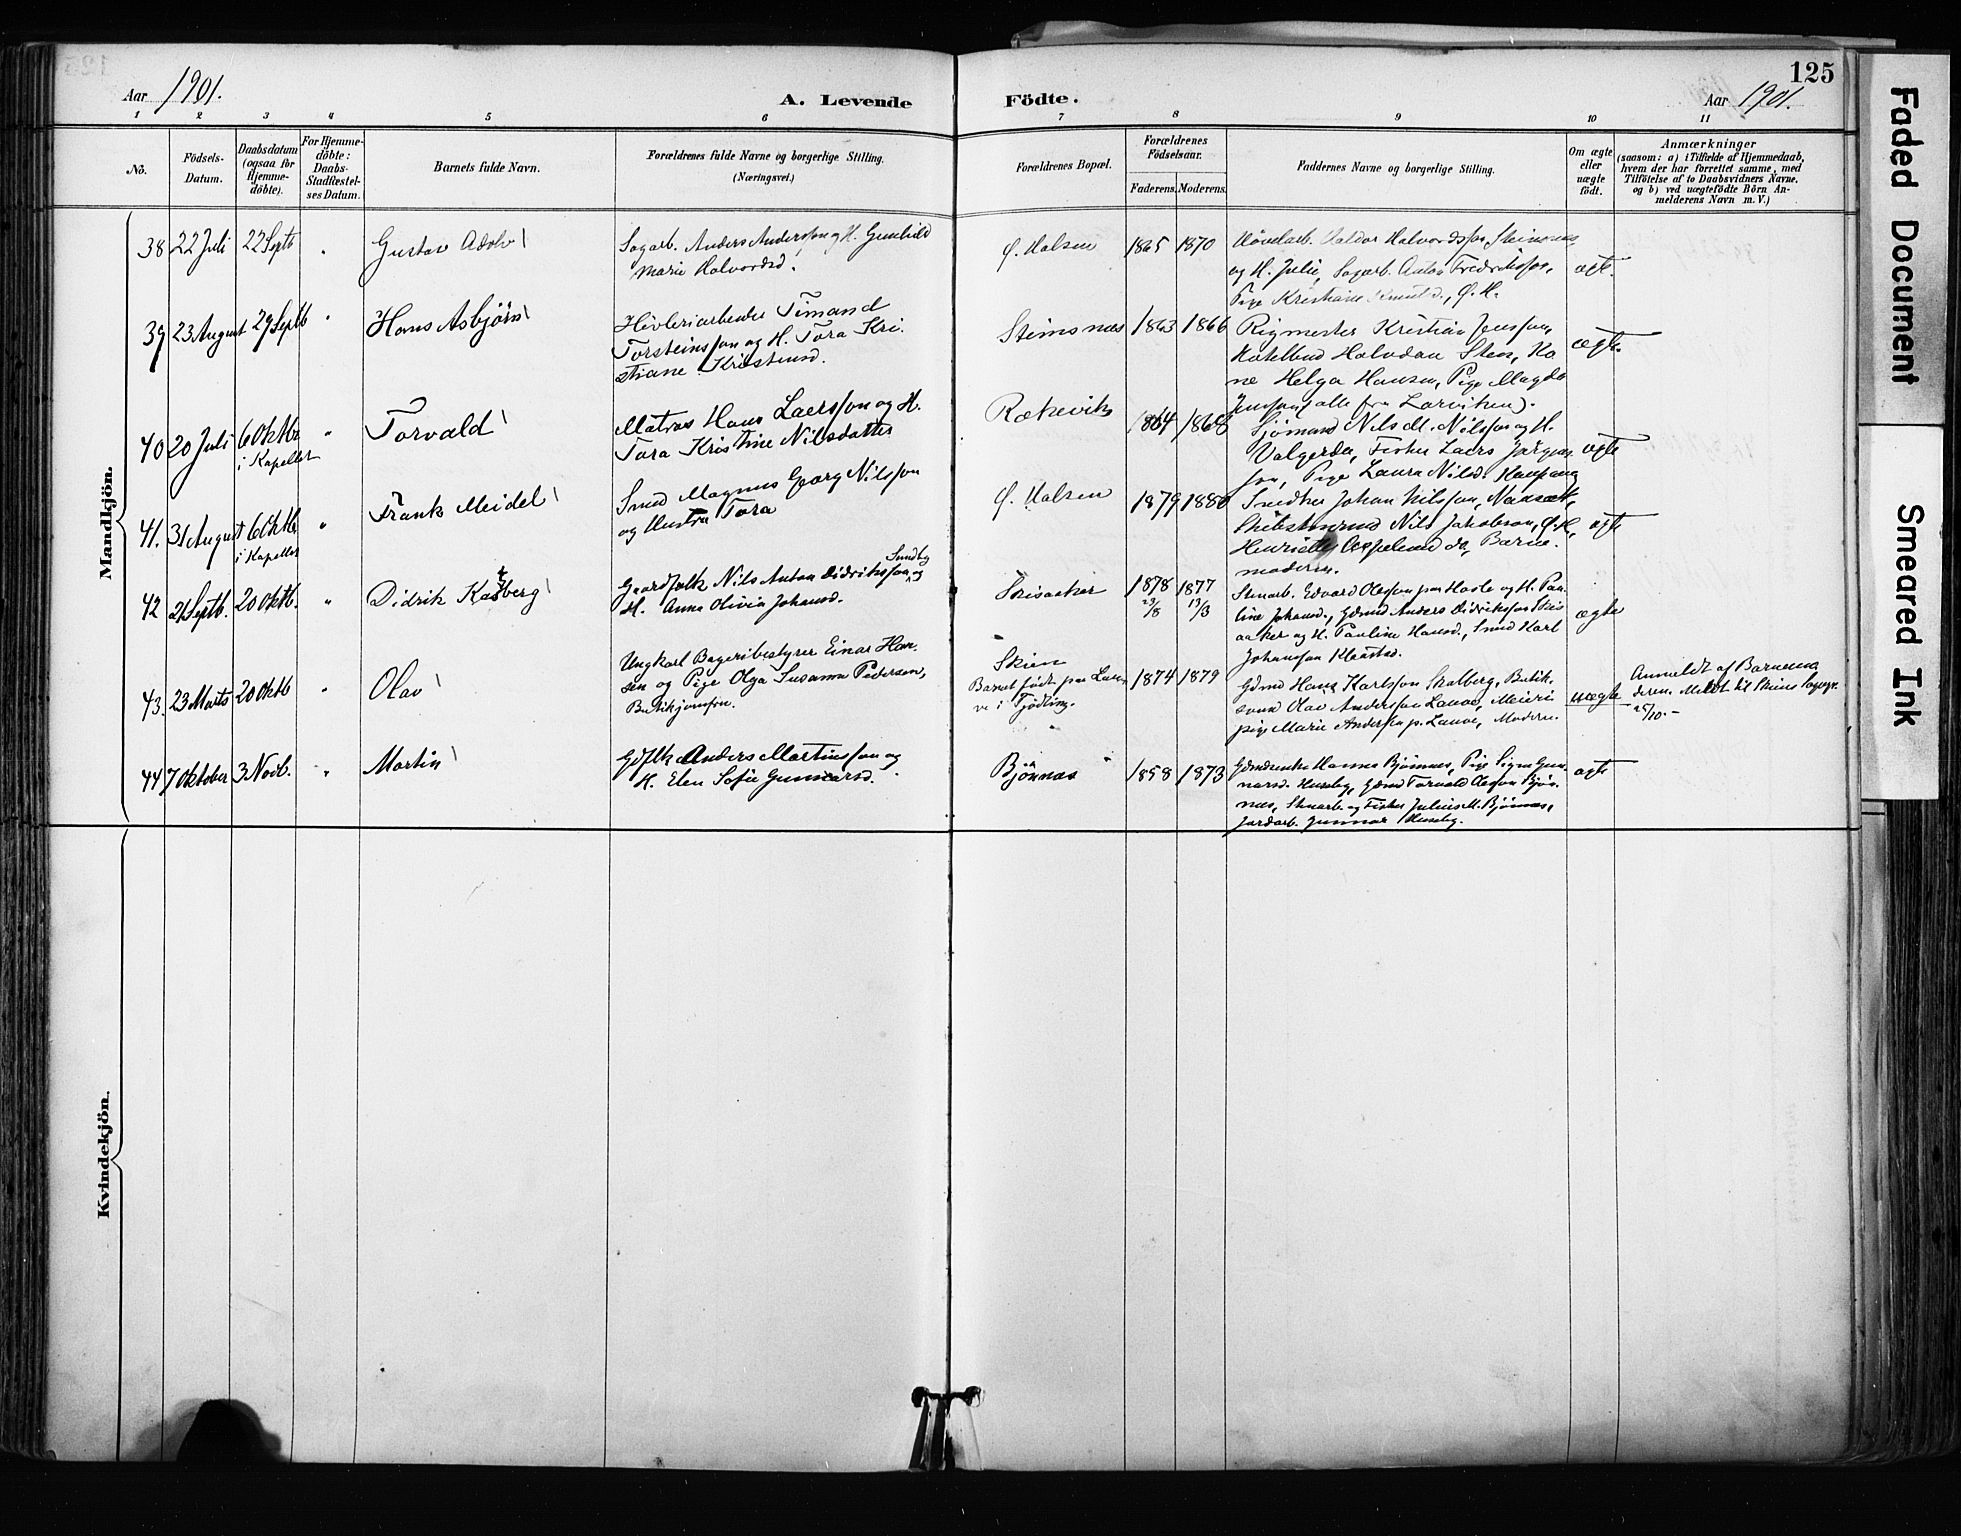 125
Aar 1901.
A. Levende Födte.
Aar 1901.
1 2 3 4 5 6 7 8 9 10 11
No.
Födsels-Datum.
Daabsdatum (ogsaa for Hjemme-döbte).
For Hjemme-döbte: Daabs-Stadfæstel-ses Datum.
Barnets fulde Navn.
Forældrenes fulde Navne og borgerlige Stilling.
(Næringsvei.)
Forældrenes Bopæl.
Forældrenes Födselsaar.
Faderens. Moderens.
Faddernes Navne og borgerlige Stilling.
Om ægte eller uægte födt.
Anmærkninger
(saasom: a) i Tilfælde af Hjemmedaab, hvem der har forrettet samme, med Tilföielse af to Daabsvidners Navne, og b) ved uægtefödte Börn Anmelderens Navn m. V.)
Mandkjön.
38 22 Juli 22 Septb " Gustav Adolv
Sagarb. Anders Andersson og H. Gunhild
Marie Halvordsd.
Ö. Halsen 1865 1870
Hövelarb. Halvordsson, Steinsnes
og H. Julie, Sagarb. Anton Fredriksson,
Pige Kristiane Knutsd., Ö. H.
ægte.
39 23 August 29 Septb " Hans Asbjörn
Hövleriarbeider Timand
Torsteinsson og H. Tora Kri-
stiane Kristensd.
Steinsnes 1863 1866
Rigmester Kristian Jensson,
Halvdan Sten, Ko
ne Helga Hansen, Pige Magda
Jensson (alle fra Larviken).
ægte.
40 20 Juli 6 Oktbr i Kapellet " Torvald
Matros Hans Laersson og H.
Tora Kristine Nilsdatter
Rækevik 1864 1868
Sjömand Nils M. Nilsson og H.
Valgerda, Fisker Laers Jörgens
son, Pige Laura Nilsd. Kaupang
ægte
41. 31 August 6 Oktb i Kapellet " Frank Meidel
Smed Magnus Georg Nilsson
og Hustru Tora
Ö. Halsen 1879 1880
Snedker Johan Nilsson, Nanset,
Skibstömmermd Nils Jakobson, Ö. H.,
Henriette do, Barne-
moderen.
ægte
42 21 Septb. 20 Oktb. " Didrik Kasberg
Gaardfolk Nils Anton Didriksson Sundby og
H. Anna Olivia Johansd.
Skisaaker 1878 29/8 1877 13/3
Stenarb. Edvard Olesson paa Hasle og H. Pau-
line Johansd., Gdmd Anders Didriksson Skis
aaker og H. Pauline Hansd., Smed Karl
Johansson Klaastad.
ægte
43. 23 Marts 20 Oktb " Olav
Ungkarl Bageribestyrer Einar Han-
sen og Pige Olga Susanna Pedersen,
Butikjomfru.
Skien
Barnet födt paa Lauv-
ve i Tjölling.
1874 1879
Gdmd Hans Karlsson Skalberg, Butik-
svend Olav Andersson Lauve, Meieri
pige Marie Anderssen p. Lauve, Moderen.
uægte
Anmeldt af Barnemo
deren. Meldt til Skiens Sogepr.
25/10. -
44 7 Oktober 3 Novb. " Martin
Gdflk Anders Martinsson og
H. Elen Sofie Gunnarsd.
Bjönnes 1858 1873
Gdmdenke Hanna Bjönnes, Pige Signe Gun-
narsd. Huseby, Gdmd Torvald Olesson Bjön-
nes, Stenarb. og Fisker Julius M. Bjönnes,
Jordarb. Gunnar Huseby.
ægte
Kvindekjön.
Faded Document
Smeared Ink